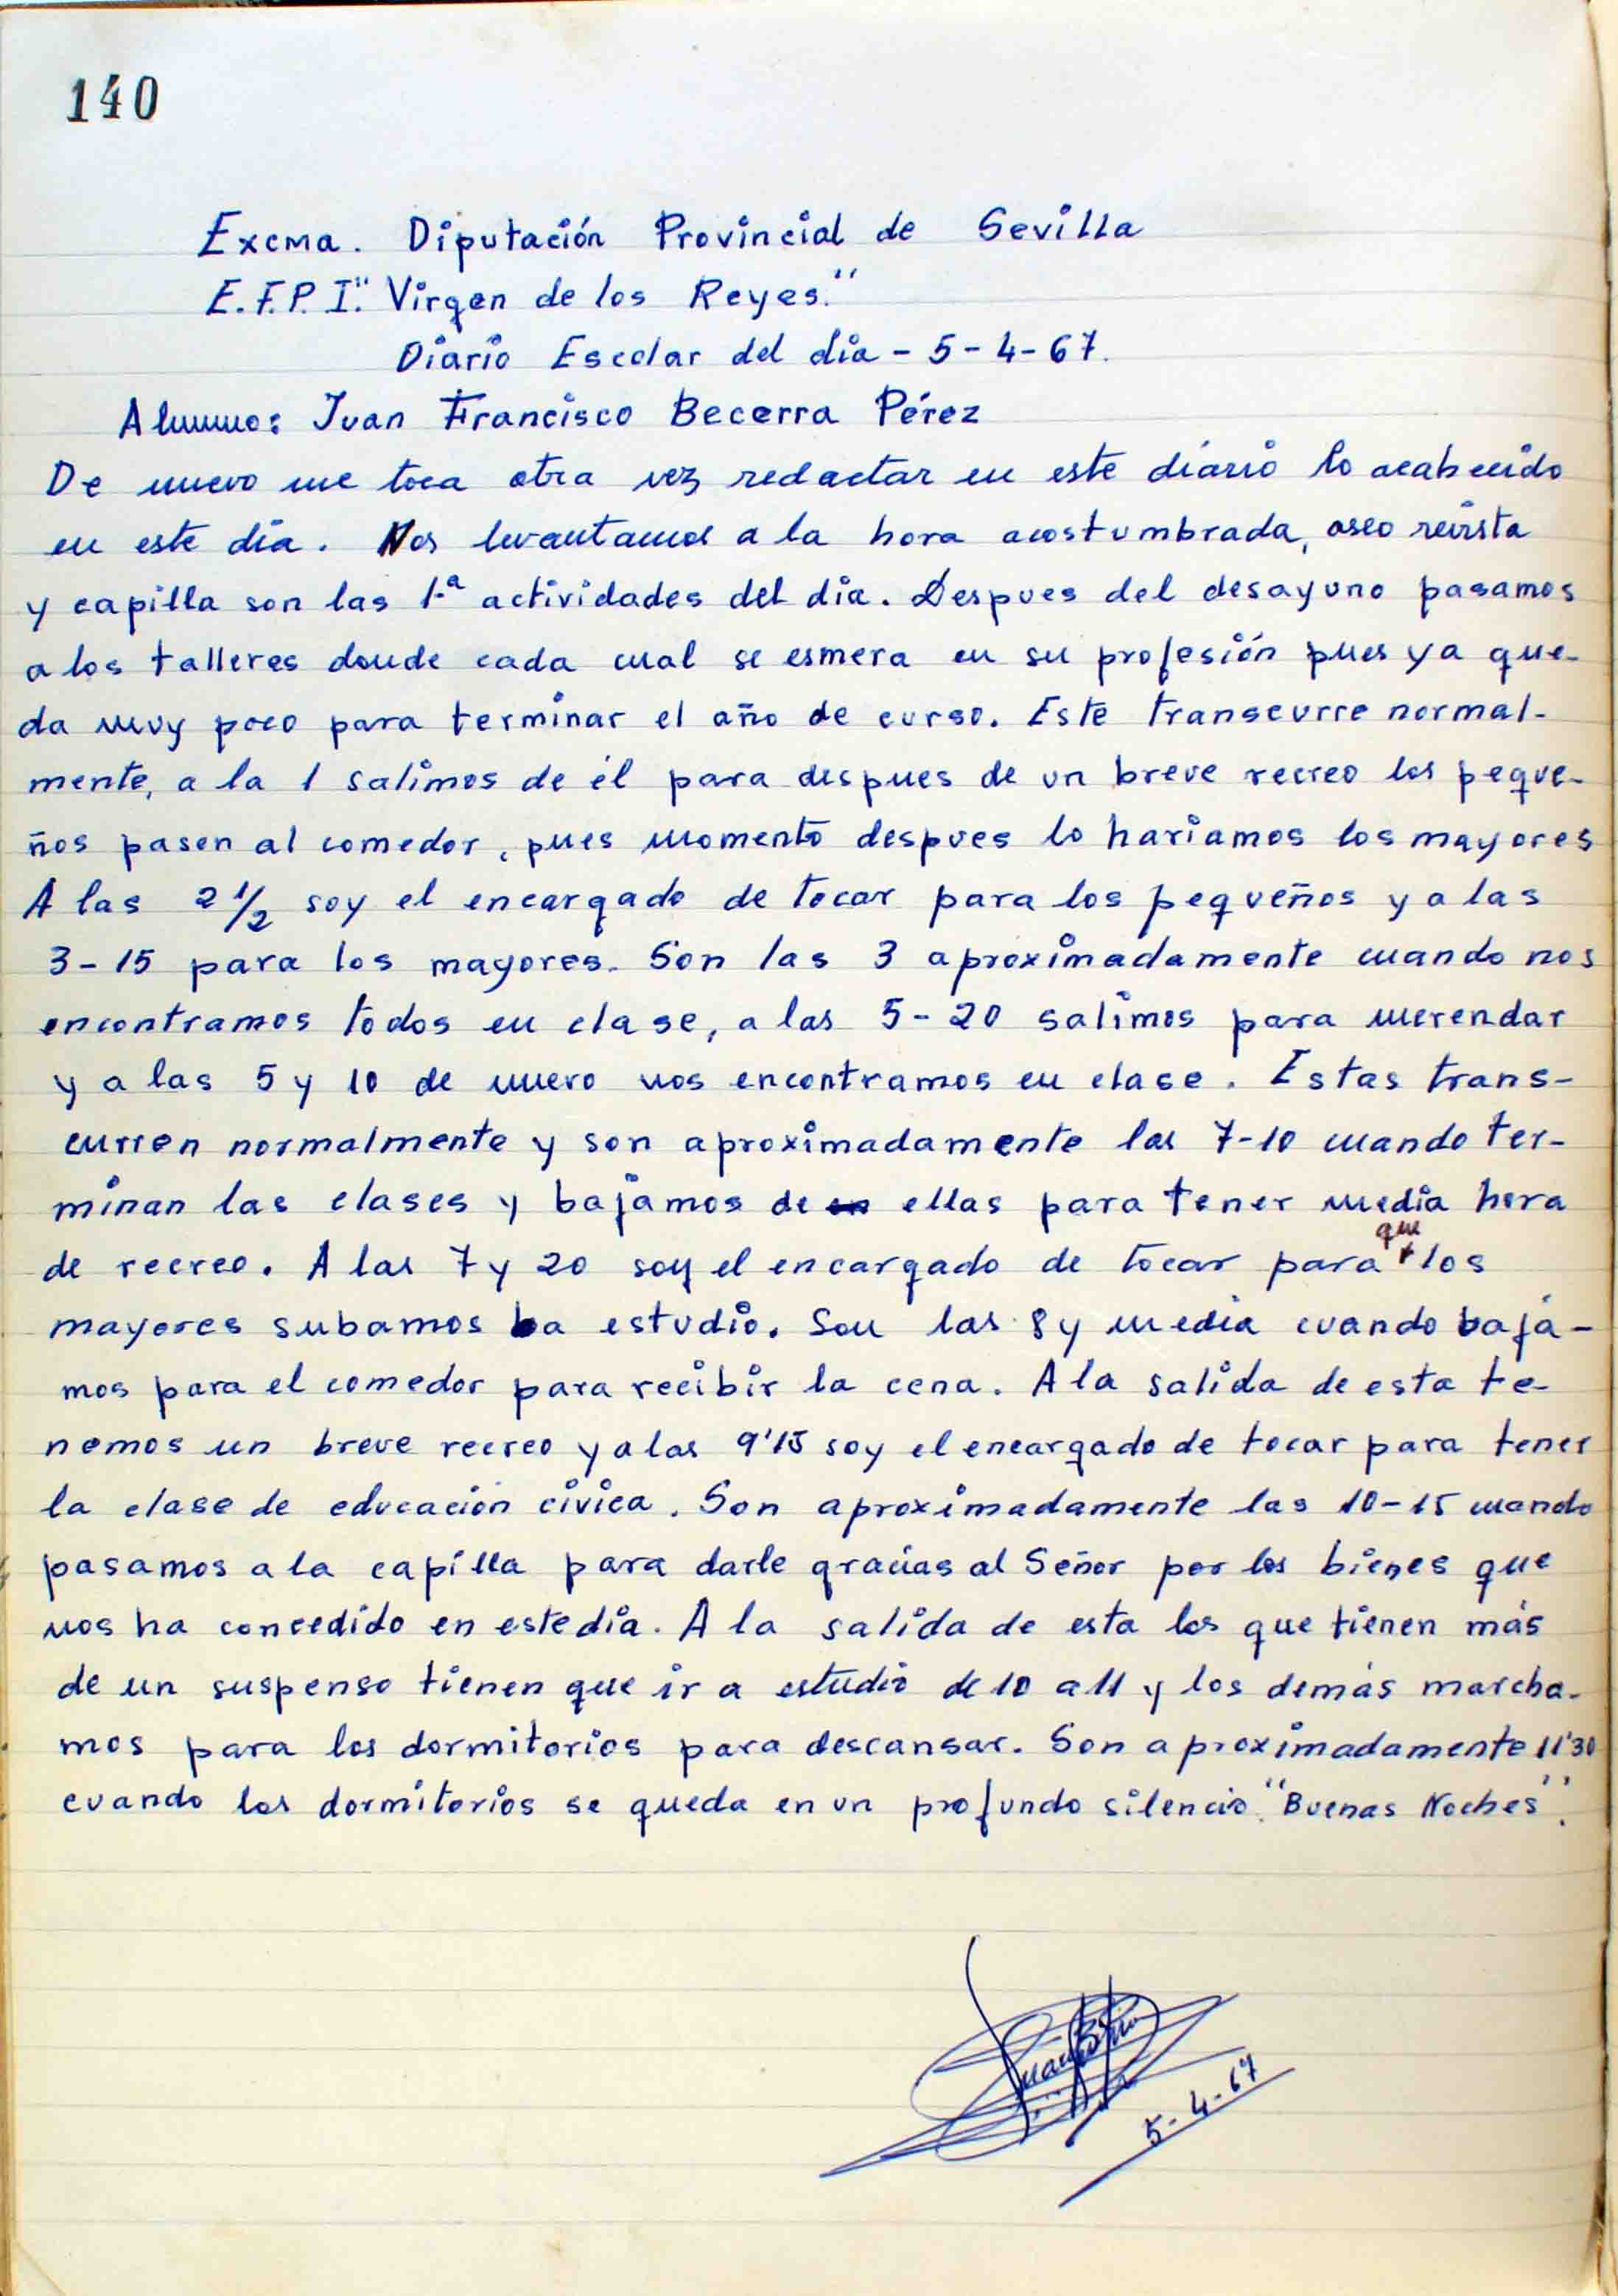 140
Excma. Diputación Provincial de Sevilla
E.F.P.I. "Virgen de los Reyes."
Diario Escolar del día - 5-4-67.
Alumno: Juan Francisco Becerra Pérez
De nuevo me toca otra vez redactar en este diario lo acahecido
en este día. Nos levantamos a la hora acostumbrada, aseo revista
y capilla son las 1.ª actividades del día. Despues del desayuno pasamos
a los talleres donde cada cual se esmera en su profesión pues ya que-
da muy poco para terminar el año de curso. Este transcurre normal-
mente, a la 1 salimos de él para despues de un breve recreo los peque-
ños pasen al comedor, pues momento despues lo hariamos los mayores
A las 2 1/2 soy el encargado de tocar para los pequeños y a las
3-15 para los mayores. Son las 3 aproximadamente cuando nos
encontramos todos en clase, a las 5-20 salimos para merendar
y a las 5 y 10 de nuevo nos encontramos en clase. Estas trans-
curren normalmente y son aproximadamente las 7-10 cuando ter-
minan las clases y bajamos de ellas para tener media hora
de recreo. A las 7 y 20 soy el encargado de tocar para que los
mayores subamos a estudio. Son las 8 y media cuando baja-
mos para el comedor para recibir la cena. A la salida de esta te-
nemos un breve recreo y a las 9'15 soy el encargado de tocar para tener
la clase de educación cívica. Son aproximadamente las 10-15 cuando
pasamos a la capilla para darle gracias al Señor por los bienes que
nos ha concedido en este día. A la salida de esta los que tienen más
de un suspenso tienen que ir a estudio de 10 a 11 y los demás marcha-
mos para los dormitorios para descansar. Son aproximadamente 11'30
cuando los dormitorios se queda en un profundo silencio. "Buenas Noches".
5-4-67